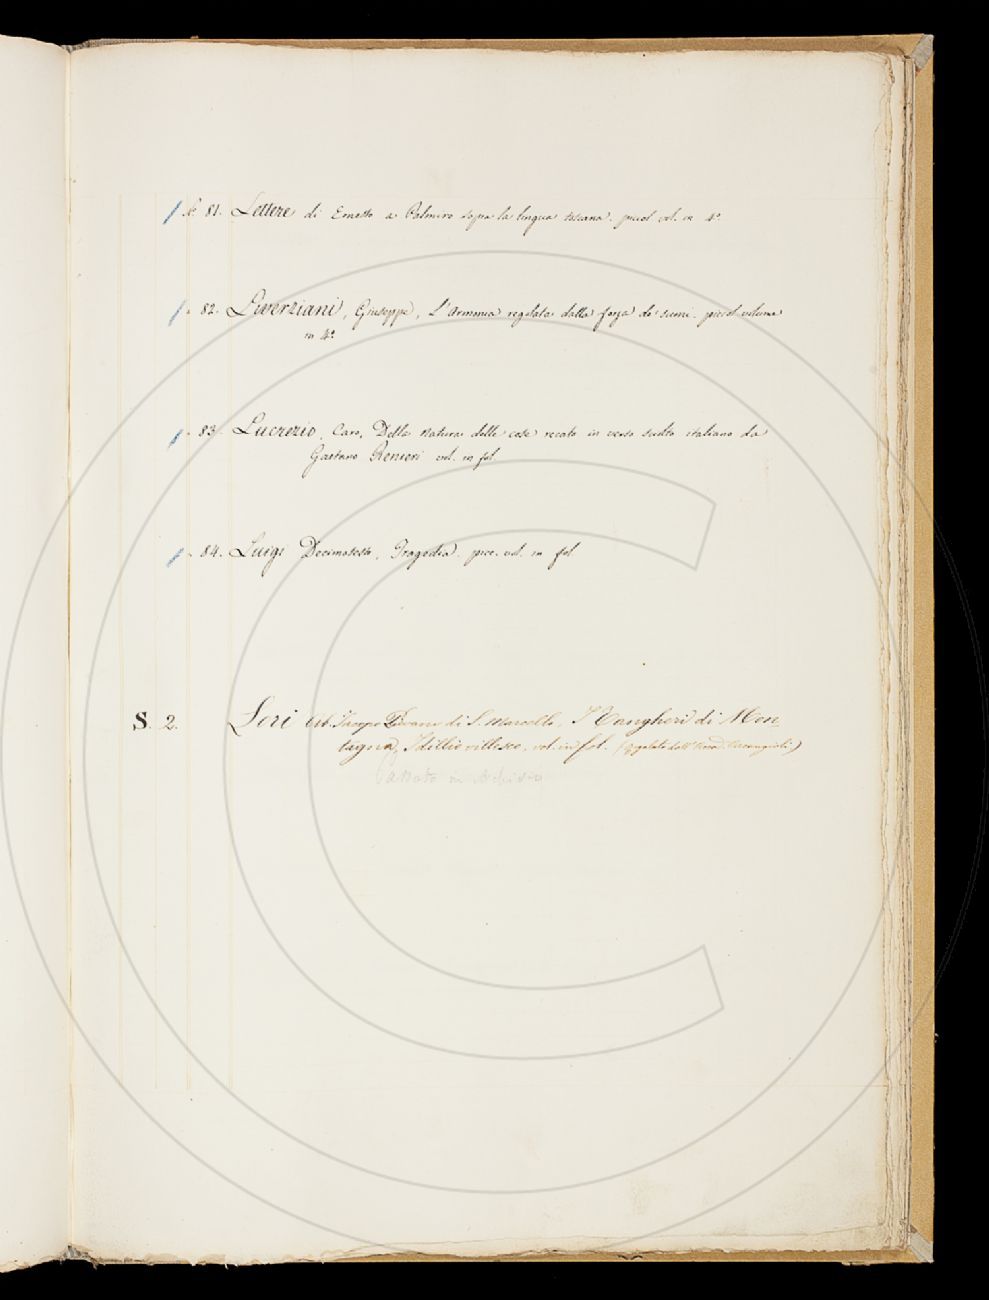 81. Lettere di Ernesto a Palmiro sopra la lingua toscana. piccol vol. in 4º
82. Liverziani, Giuseppe, L'Armonia regolata dalla forza de' suoni. piccol volume
in 4º
83. Lucrezio, Caro, Della Natura delle cose recato in verso sciolto italiano da
Gaetano Renieri vol. in fol
84. Luigi Decimosesto, Tragedia. picc. vol. in fol
S. 2. Lori Ab. Jacopo Piovano di S. Marcello, I Vangheri di Mon
tagna, Idillio villesco. vol. in fol.
Passato in